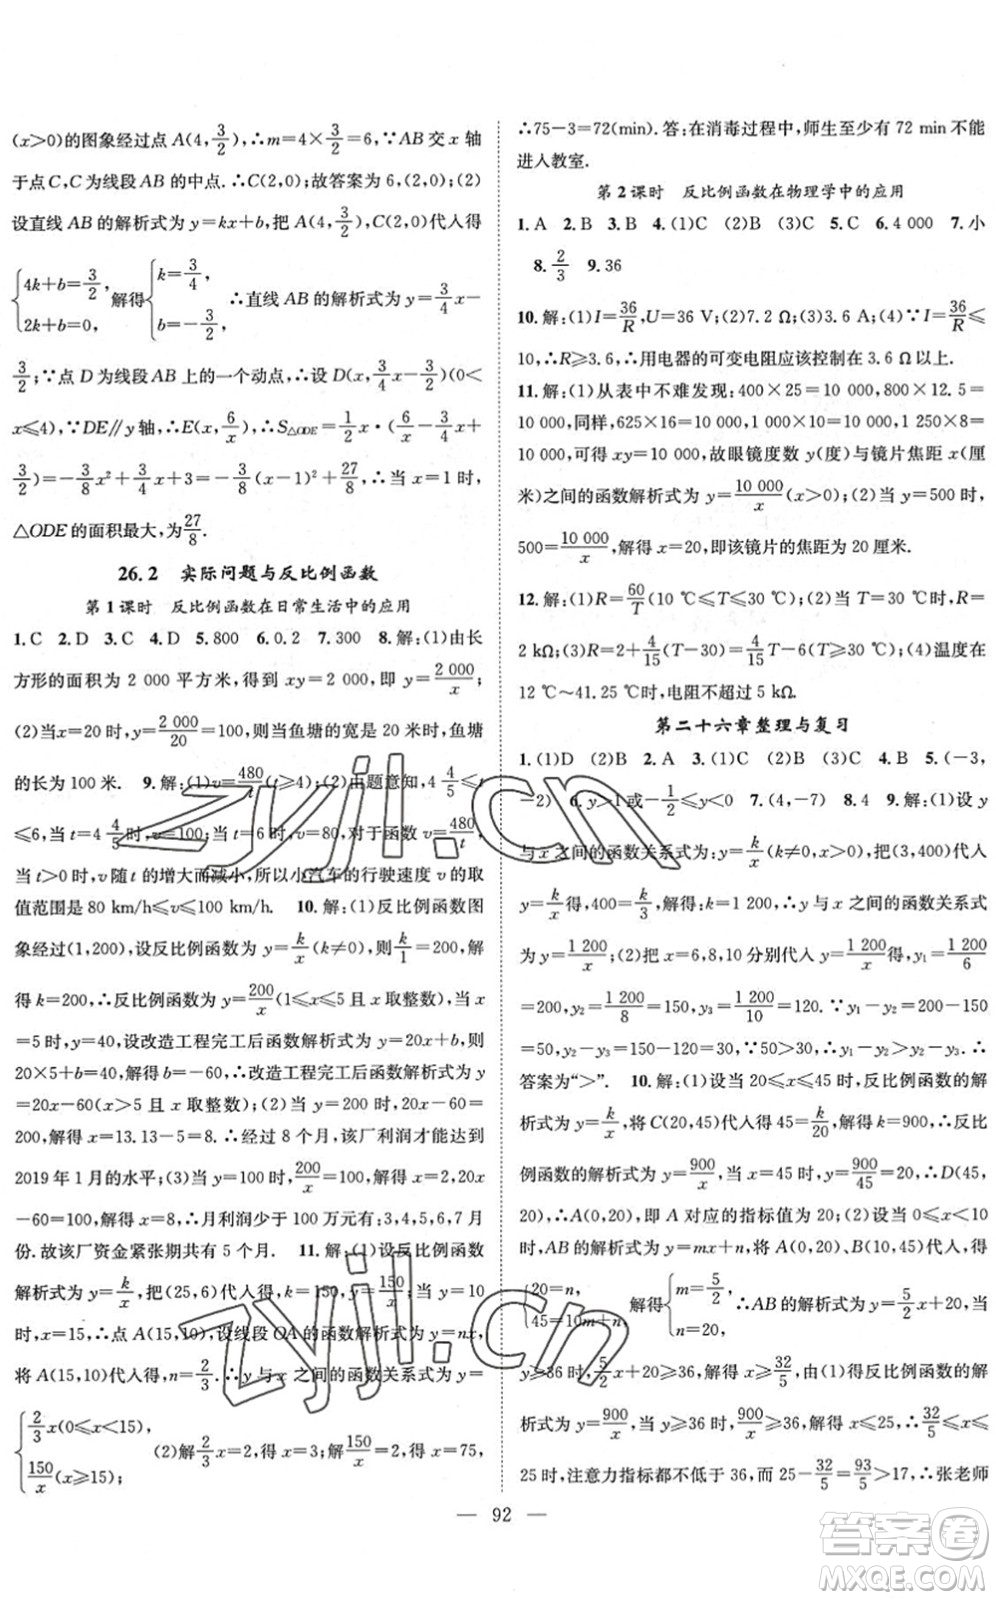 (x>0)的图象经过点 A(4,3/2),∴m=4×3/2=6,∵AB 交 x 轴
于点 C,C 为线段 AB 的中点.∴C(2,0);故答案为 6,(2,0);(2)
设直线 AB 的解析式为 y=kx+b,把 A(4,3/2),C(2,0)代入得
{4k+b=3/2, 2k+b=0, 解得{k=3/4, b=-3/2, ∴直线 AB 的解析式为 y=3/4x-
3/2;∵点 D 为线段 AB 上的一个动点,∴设 D(x,3/4x-3/2)(0<
x≤4),∵DE∥y 轴,∴E(x,6/x),∴S△ODE=1/2x·(6/x-3/4x+
3/2)=-3/8x²+3/4x+3=-3/8(x-1)²+27/8,∴当 x=1 时,
△ODE 的面积最大,为27/8.
26.2 实际问题与反比例函数
第 1 课时 反比例函数在日常生活中的应用
1.C 2.D 3.C 4.A 5.800 6.0.2 7.300 8.解:(1)由长
方形的面积为 2 000 平方米,得到 xy=2 000,即 y=2 000/x;
(2)当x=20 时,y=2 000/20=100,则当鱼塘的宽是 20 米时,鱼塘
的长为 100 米. 9.解:(1)v=480/t(t≥4);(2)由题意知,4 4/5≤t
≤6,当 t=4 4/5时,v=100;当 t=6 时,v=80,对于函数 v=480/t,
当 t>0时,v 随 t 的增大而减小,所以小汽车的行驶速度 v 的取
值范围是 80 km/h≤v≤100 km/h. 10.解:(1)反比例函数图
象经过(1,200),设反比例函数为 y=k/x(k≠0),则k/1=200,解
得 k=200,∴反比例函数为 y=200/x(1≤x≤5 且 x 取整数),当 x
=5 时,y=40,设改造工程完工后函数解析式为 y=20x+b,则
20×5+b=40,解得 b=-60,∴改造工程完工后函数解析式为 y
=20x-60(x>5 且 x 取整数);(2)当 y=200 时,20x-60=
200,解得 x=13.13-5=8.∴经过 8 个月,该厂利润才能达到
2019 年 1 月的水平;(3)当 y=100 时,200/x=100,解得 x=2,20x
-60=100,解得 x=8,∴月利润少于 100 万元有:3,4,5,6,7 月
份.故该厂资金紧张期共有 5 个月. 11.解:(1)设反比例函数
解析式为 y=k/x,把(25,6)代入得 k=25×6=150,∴y=150/x;当 y=10
时,x=15,∴点 A(15,10),设线段 OA 的函数解析式为 y=nx,
将 A(15,10)代入得,n=2/3.∴y 与 x 之间的函数关系式为 y=
{2/3x(0≤x<15), 150/x(x≥15); (2)解2/3x=2,得 x=3;解150/x=2,得 x=75,
∴75-3=72(min).答:在消毒过程中,师生至少有 72 min 不能
进入教室.
第 2 课时 反比例函数在物理学中的应用
1.A 2.B 3.B 4.(1)C (2)D (3)C 5.C 6.4 000 7.小
8.2/3 9.36
10.解:(1)I=36/R,U=36 V;(2)7.2 Ω;(3)3.6 A;(4)∵I=36/R≤
10,∴R≥3.6,∴用电器的可变电阻应该控制在 3.6 Ω以上.
11.解:(1)从表中不难发现:400×25=10 000,800×12.5=
10 000,同样,625×16=10 000,1 000×10=10 000,1 250×8=
10 000,可得 xy=10 000,故眼镜度数 y(度)与镜片焦距 x(厘
米)之间的函数解析式为 y=10 000/x(x>0);(2)当 y=500 时,
500=10 000/x,解得 x=20,即该镜片的焦距为 20 厘米.
12.解:(1)R=60/T(10 ℃≤T≤30 ℃);(2)当 T=30 时,R=
2 kΩ;(3)R=2+4/15(T-30)=4/15T-6(T≥30 ℃);(4)温度在
12 ℃~41.25 ℃时,电阻不超过 5 kΩ.
第二十六章整理与复习
1.(1)D (2)B 2.A 3.(1)C (2)C (3)C 4.B 5.(-3,
-2) 6.y>1或-1/2≤y<0 7.(4,-7) 8.4 9.解:(1)设 y
与 x 之间的函数关系式为:y=k/x(k≠0),把(3,400)代入
y=k/x得,400=k/3,解得:k=1 200,∴y 与 x 之间的函数关系式
为 y=1 200/x;(2)把 x=6,8,10 分别代入 y=1 200/x得,y₁=1 200/6
=200,y₂=1 200/8=150,y₃=1 200/10=120,∵y₁-y₂=200-150
=50,y₂-y₃=150-120=30,∵50>30,∴y₁-y₂>y₂-y₃,故
答案为“>”. 10.解:(1)设当 20≤x≤45 时,反比例函数的解
析式为 y=k/x,将 C(20,45)代入得 45=k/20,解得 k=900,∴反比
例函数的解析式为 y=900/x,当 x=45 时,y=900/45=20,∴D(45,
20),∴A(0,20),即 A 对应的指标值为 20;(2)设当 0≤x<10
时,AB 的解析式为 y=mx+n,将 A(0,20)、B(10,45)代入,得
{20=n, 45=10m+n, 解得{m=5/2, n=20, ∴AB 的解析式为 y=5/2x+20,当
y≥36 时,5/2x+20≥36,解得 x≥32/5,由(1)得反比例函数的解
析式为 y=900/x,当 y≥36 时,900/x≥36,解得 x≤25,∴32/5≤x≤
25 时,注意力指标都不低于 36,而 25-32/5=93/5>17,∴张老师
92
zyjl.cn
zyjl.cn
答案圈
MXQE.COM